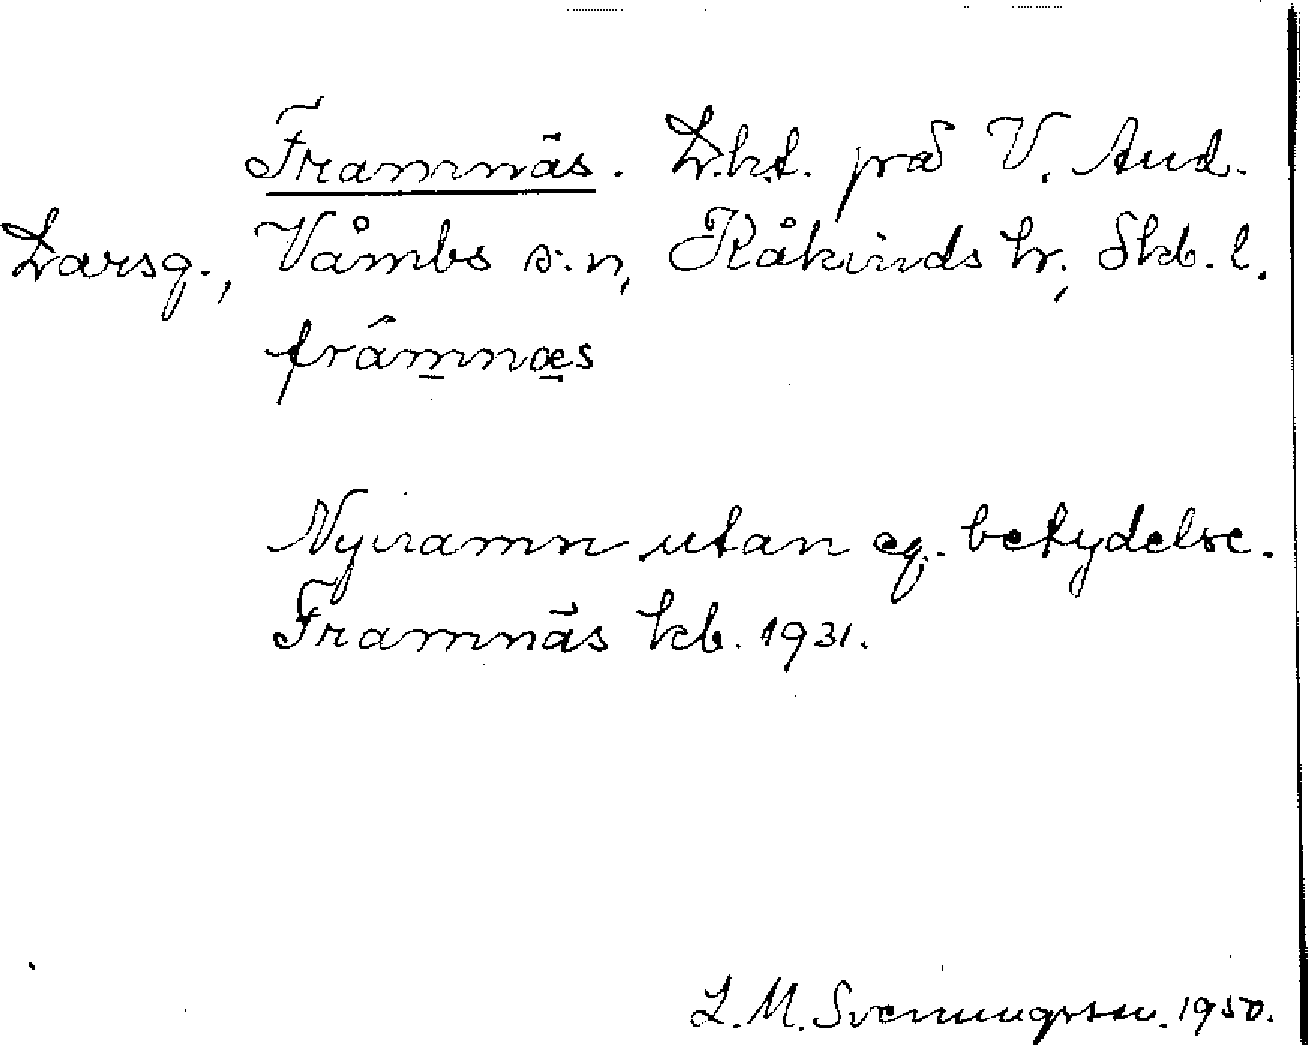 Framnäs. Lht. på V. And.
Larsg., Våmbs s:n, Kåkinds hr, Skb. l.
frámnæs
Nynamn utan eg. betydelse.
Framnäs kb. 1931.
L. M. Svenungsson. 1950.